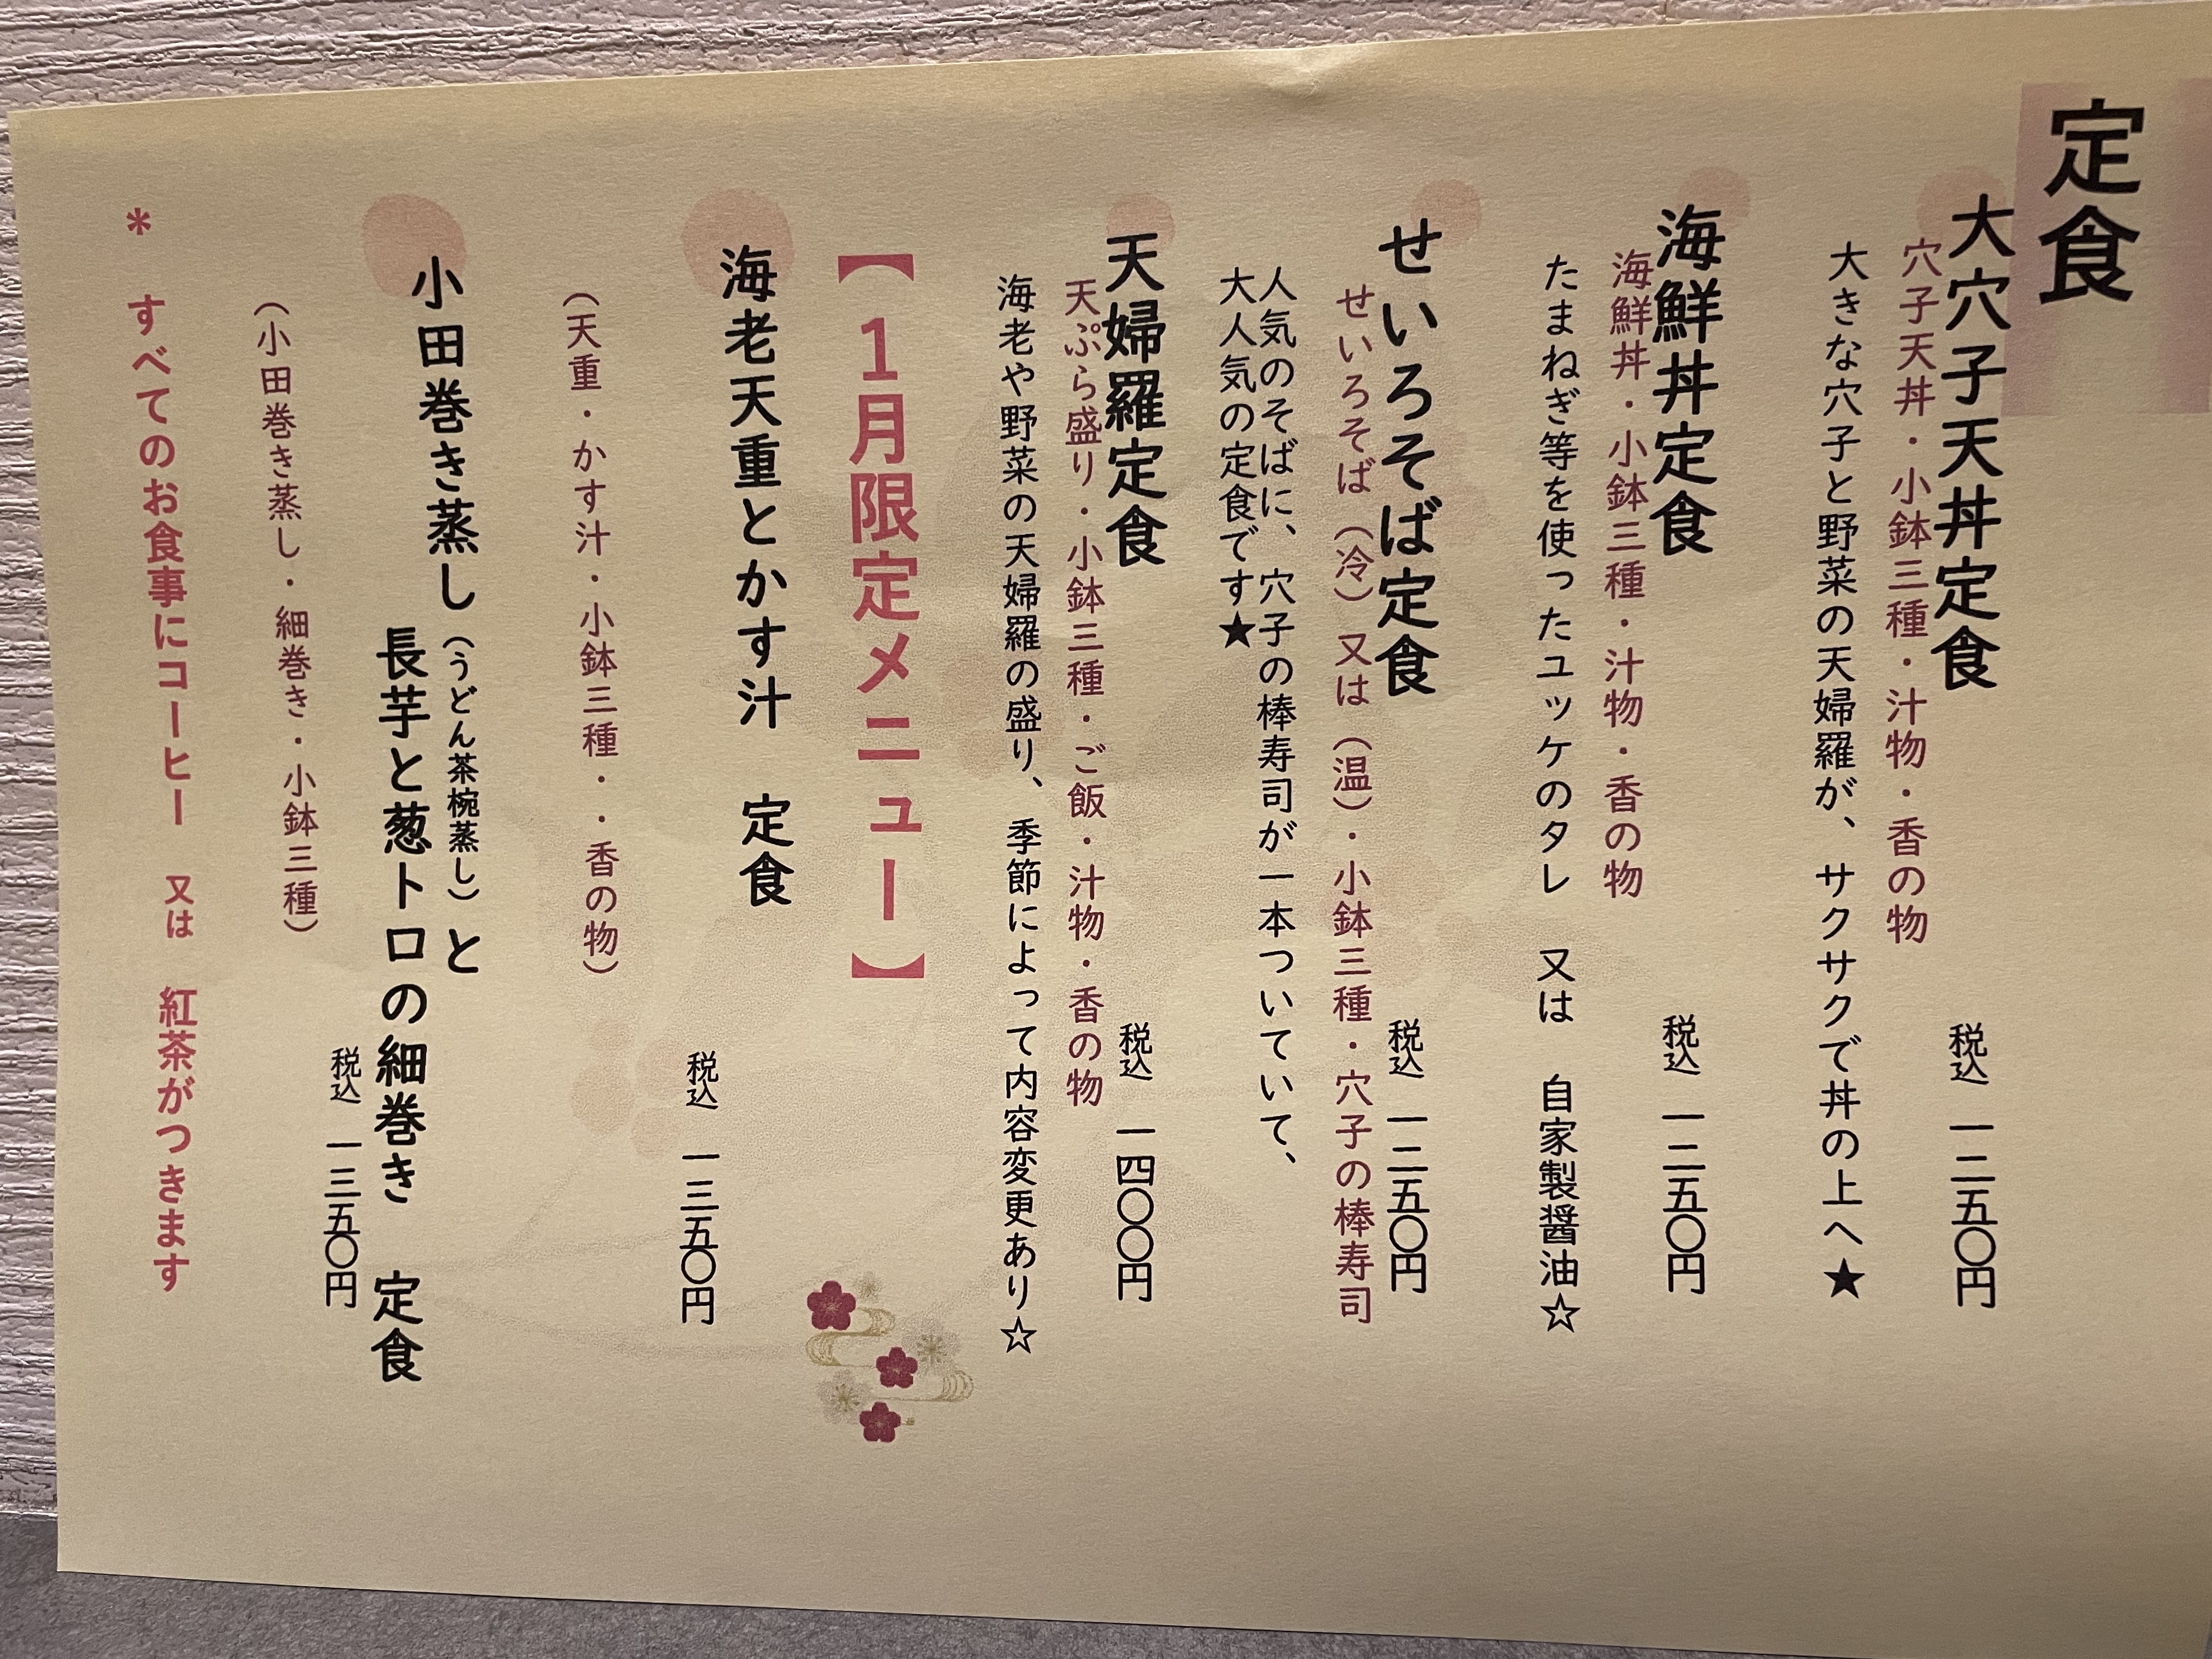 定食
大穴子天丼定食 税込 一二五〇円
穴子天丼・小鉢三種・汁物・香の物
大きな穴子と野菜の天婦羅が、サクサクで丼の上へ★
海鮮丼定食 税込 一二五〇円
海鮮丼・小鉢三種・汁物・香の物
たまねぎ等を使ったユッケのタレ 又は 自家製醤油☆
せいろそば定食 税込 一二五〇円
せいろそば（冷）又は（温）・小鉢三種・穴子の棒寿司
人気のそばに、穴子の棒寿司が一本ついていて、
大人気の定食です★
天婦羅定食 税込 一四〇〇円
天ぷら盛り・小鉢三種・ご飯・汁物・香の物
海老や野菜の天婦羅の盛り、季節によって内容変更あり☆
【1月限定メニュー】
海老天重とかす汁 定食 税込 一三五〇円
（天重・かす汁・小鉢三種・・香の物）
小田巻き蒸し（うどん茶椀蒸し）と
長芋と葱トロの細巻き 定食
税込 一三五〇円
（小田巻き蒸し・細巻き・小鉢三種）
* すべてのお食事にコーヒー 又は 紅茶がつきます